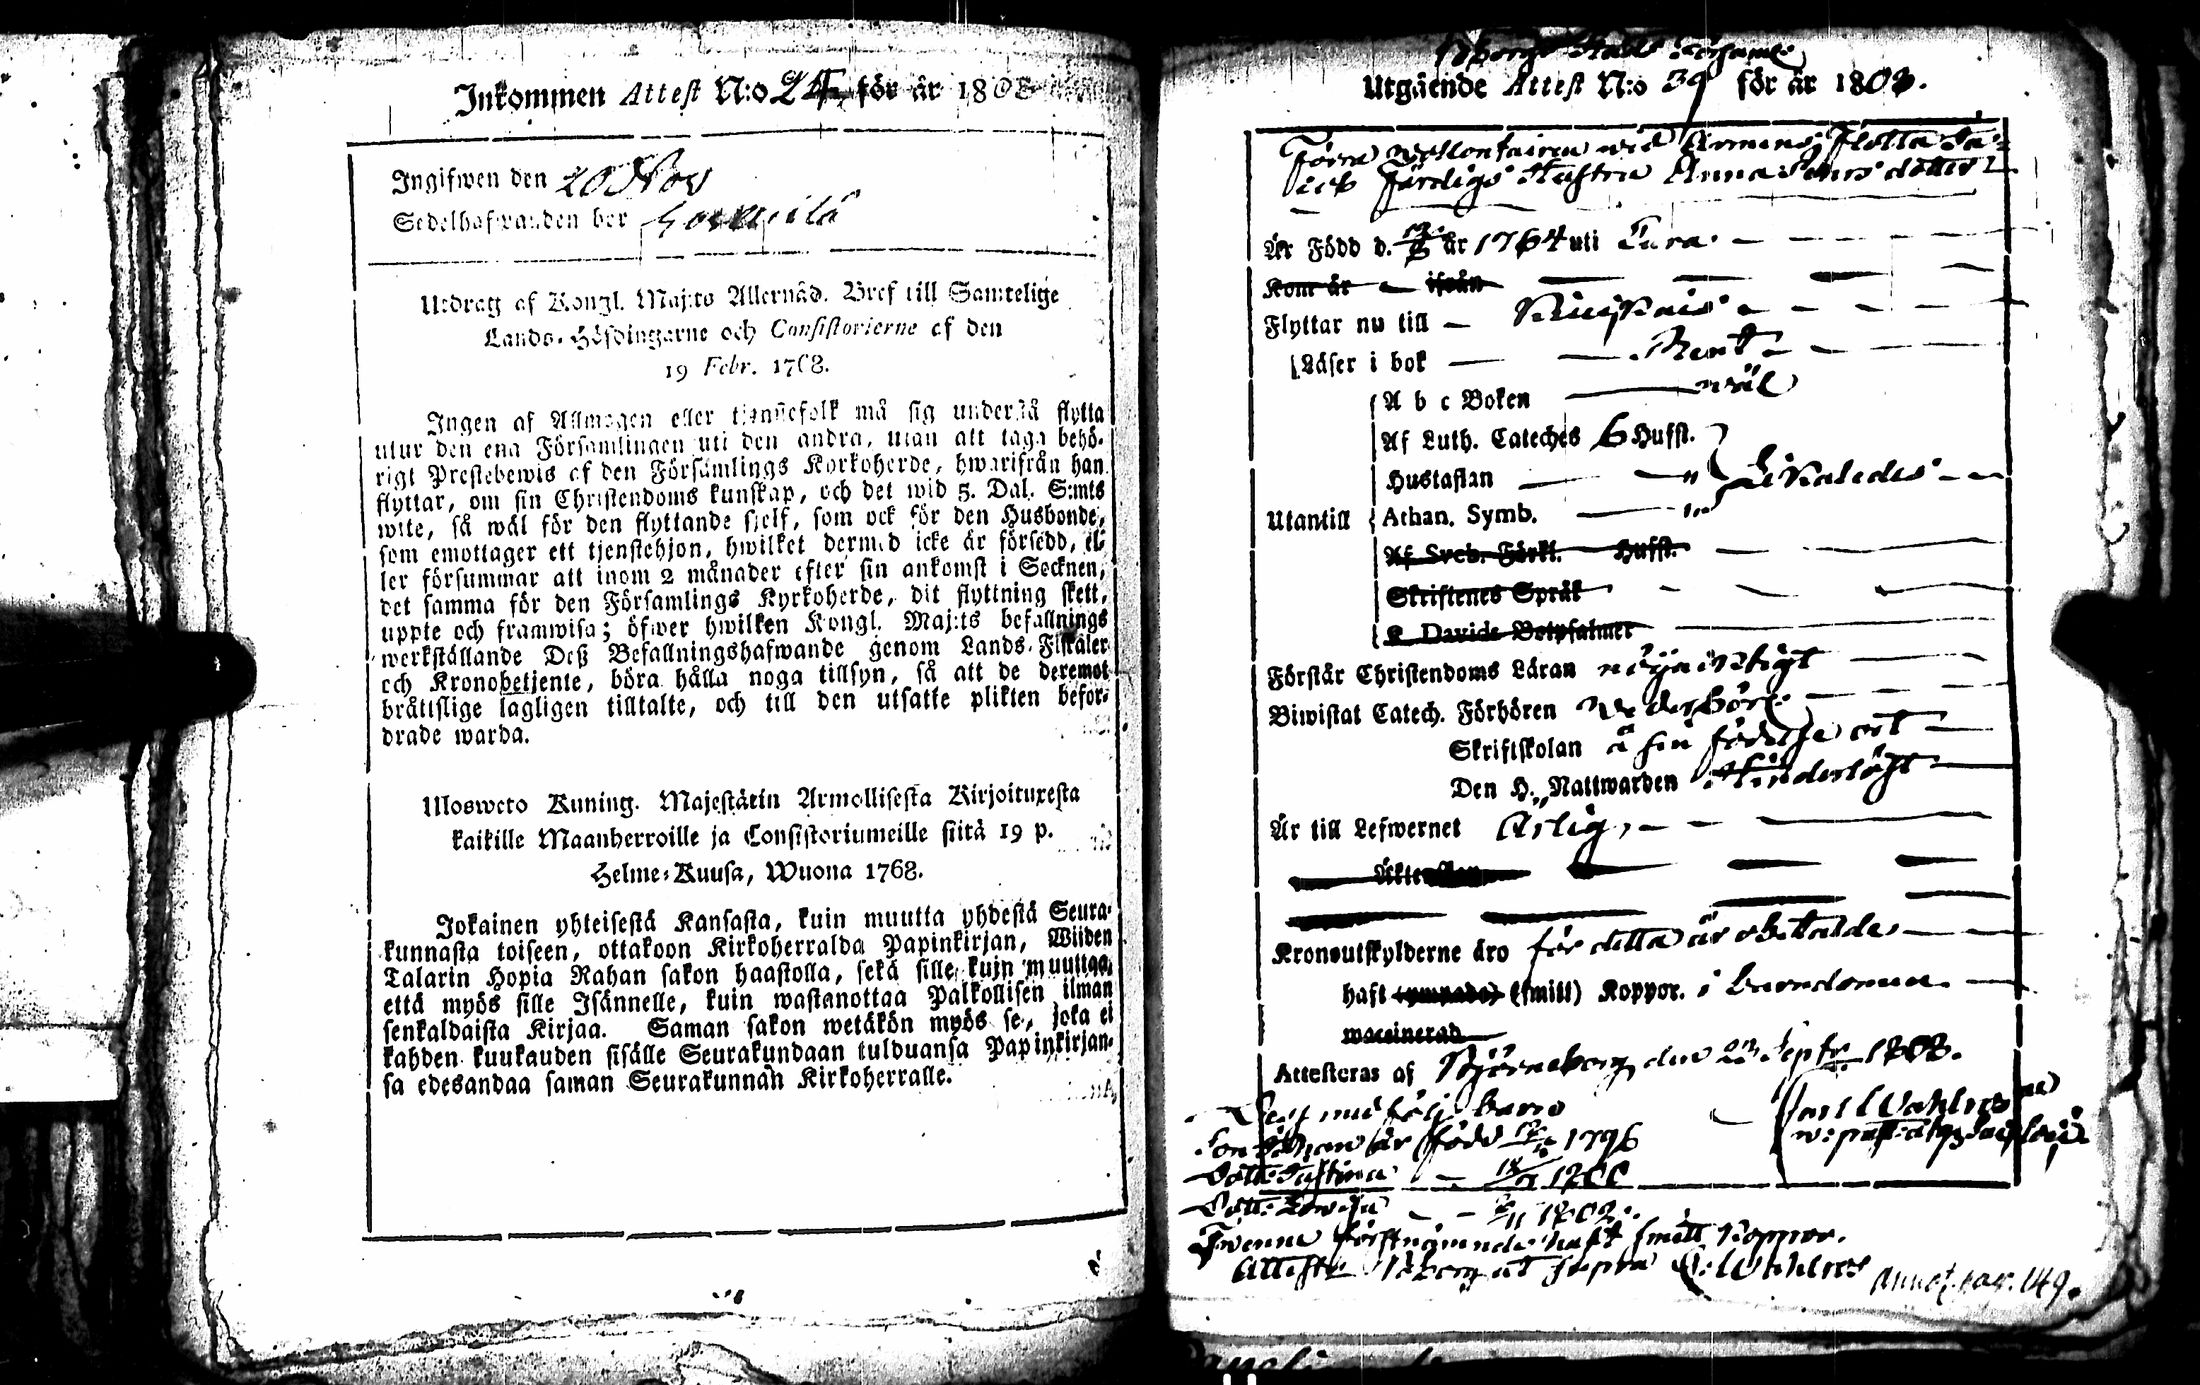 Inkommen Attest N:o 24 för år 1808
Ingifwen den 20 Nov
Sedelhafwanden bor
Utdrag af Kongl. Maj:ts Allernåd. Bref till Samtelige
Lands-Höfdingarne och Consistorierne af den
19 Febr. 1768.
Ingen af Allmogen eller tjenstefolk må sig understå flytta
utur den ena Församlingen uti den andra, utan att taga behö-
rigt Prestebewis af den Församlings Kyrkoherde, hwarifrån han
flyttar, om sin Christendoms kunskap, och det wid 5. Dal. S:mts
wite, så wäl för den flyttande sjelf, som ock för den Husbonde,
som emottager ett tjenstehjon, hwilket dermed icke är försedd, el-
ler försummar att inom 2 månader efter sin ankomst i Socknen,
det samma för den Församlings Kyrkoherde, dit flyttning skett,
uppte och framwisa; öfwer hwilken Kongl. Maj:ts befallnings
werkställande Deß Befallningshafwande genom Lands-Fiskaler
och Kronobetjente, böra hålla noga tillsyn, så att de deremot
bråttslige lagligen tilltalte, och till den utsatte plikten befor-
drade warda.
Ulosweto Kuning. Majestätin Armollisesta Kirjoituxesta
kaikille Maanherroille ja Consistoriumeille siitä 19 p.
Helme-Kuusa, Wuona 1768.
Jokainen yhteisestä Kansasta, kuin muutta yhdestä Seura-
kunnasta toiseen, ottakoon Kirkoherralda Papinkirjan, Wiiden
Talarin Hopia Rahan sakon haastolla, sekä sille, kuin muuttaa,
että myös sille Isännelle, kuin wastanottaa Palkollisen ilman
senkaldaista Kirjaa. Saman sakon wetäkön myös se, joka ei
kahden kuukauden sisälle Seurakundaan tulduansa Papinkirjan-
sa edesandaa saman Seurakunnan Kirkoherralle.
Biborgs Stads Församl:
Utgående Attest N:o 39 för år 1808.
Förra Volontairen wid Armens Flotta Ja-
icb Färdigs Hustru Anna Simsdotter
Är Född d. 12/8 år 1764 uti Eura.
Kom år ifrån
Flyttar nu till
Läser i bok Rent
A b c Boken wäl
Af Luth. Cateches 6 Hufst.
Hustaflan " Likaledes
Utantill Athan. Symb. "
Af Sveb. Förkl. Hufst.
Skriftenes Språk
K Davids Botpsalmer
Förstår Christendoms Läran nöjaktigt
Biwistat Catech. Förhören wederbörl:
Skriftskolan å sin födelse ort
Den H. Nattwarden Hinderlöst
Är till Lefwernet Ärlig,
Kronoutskylderne äro för detta år obetalde
haft (ympade) (smitt) Koppor. i barndomen
waccinerad
Attesteras af Björneborg den 23 Septr 1808.
Carl Wahlroos
Legt med följ. barn
Son Johan är född 12/10 1796
Dott: Justina 1800
Dott: Lowisa /11 1802.
Twenne förstnämnde haft smitt Koppor.
Attestr Bborg ut supra C: Wahlroos
Annot. pag. 149.